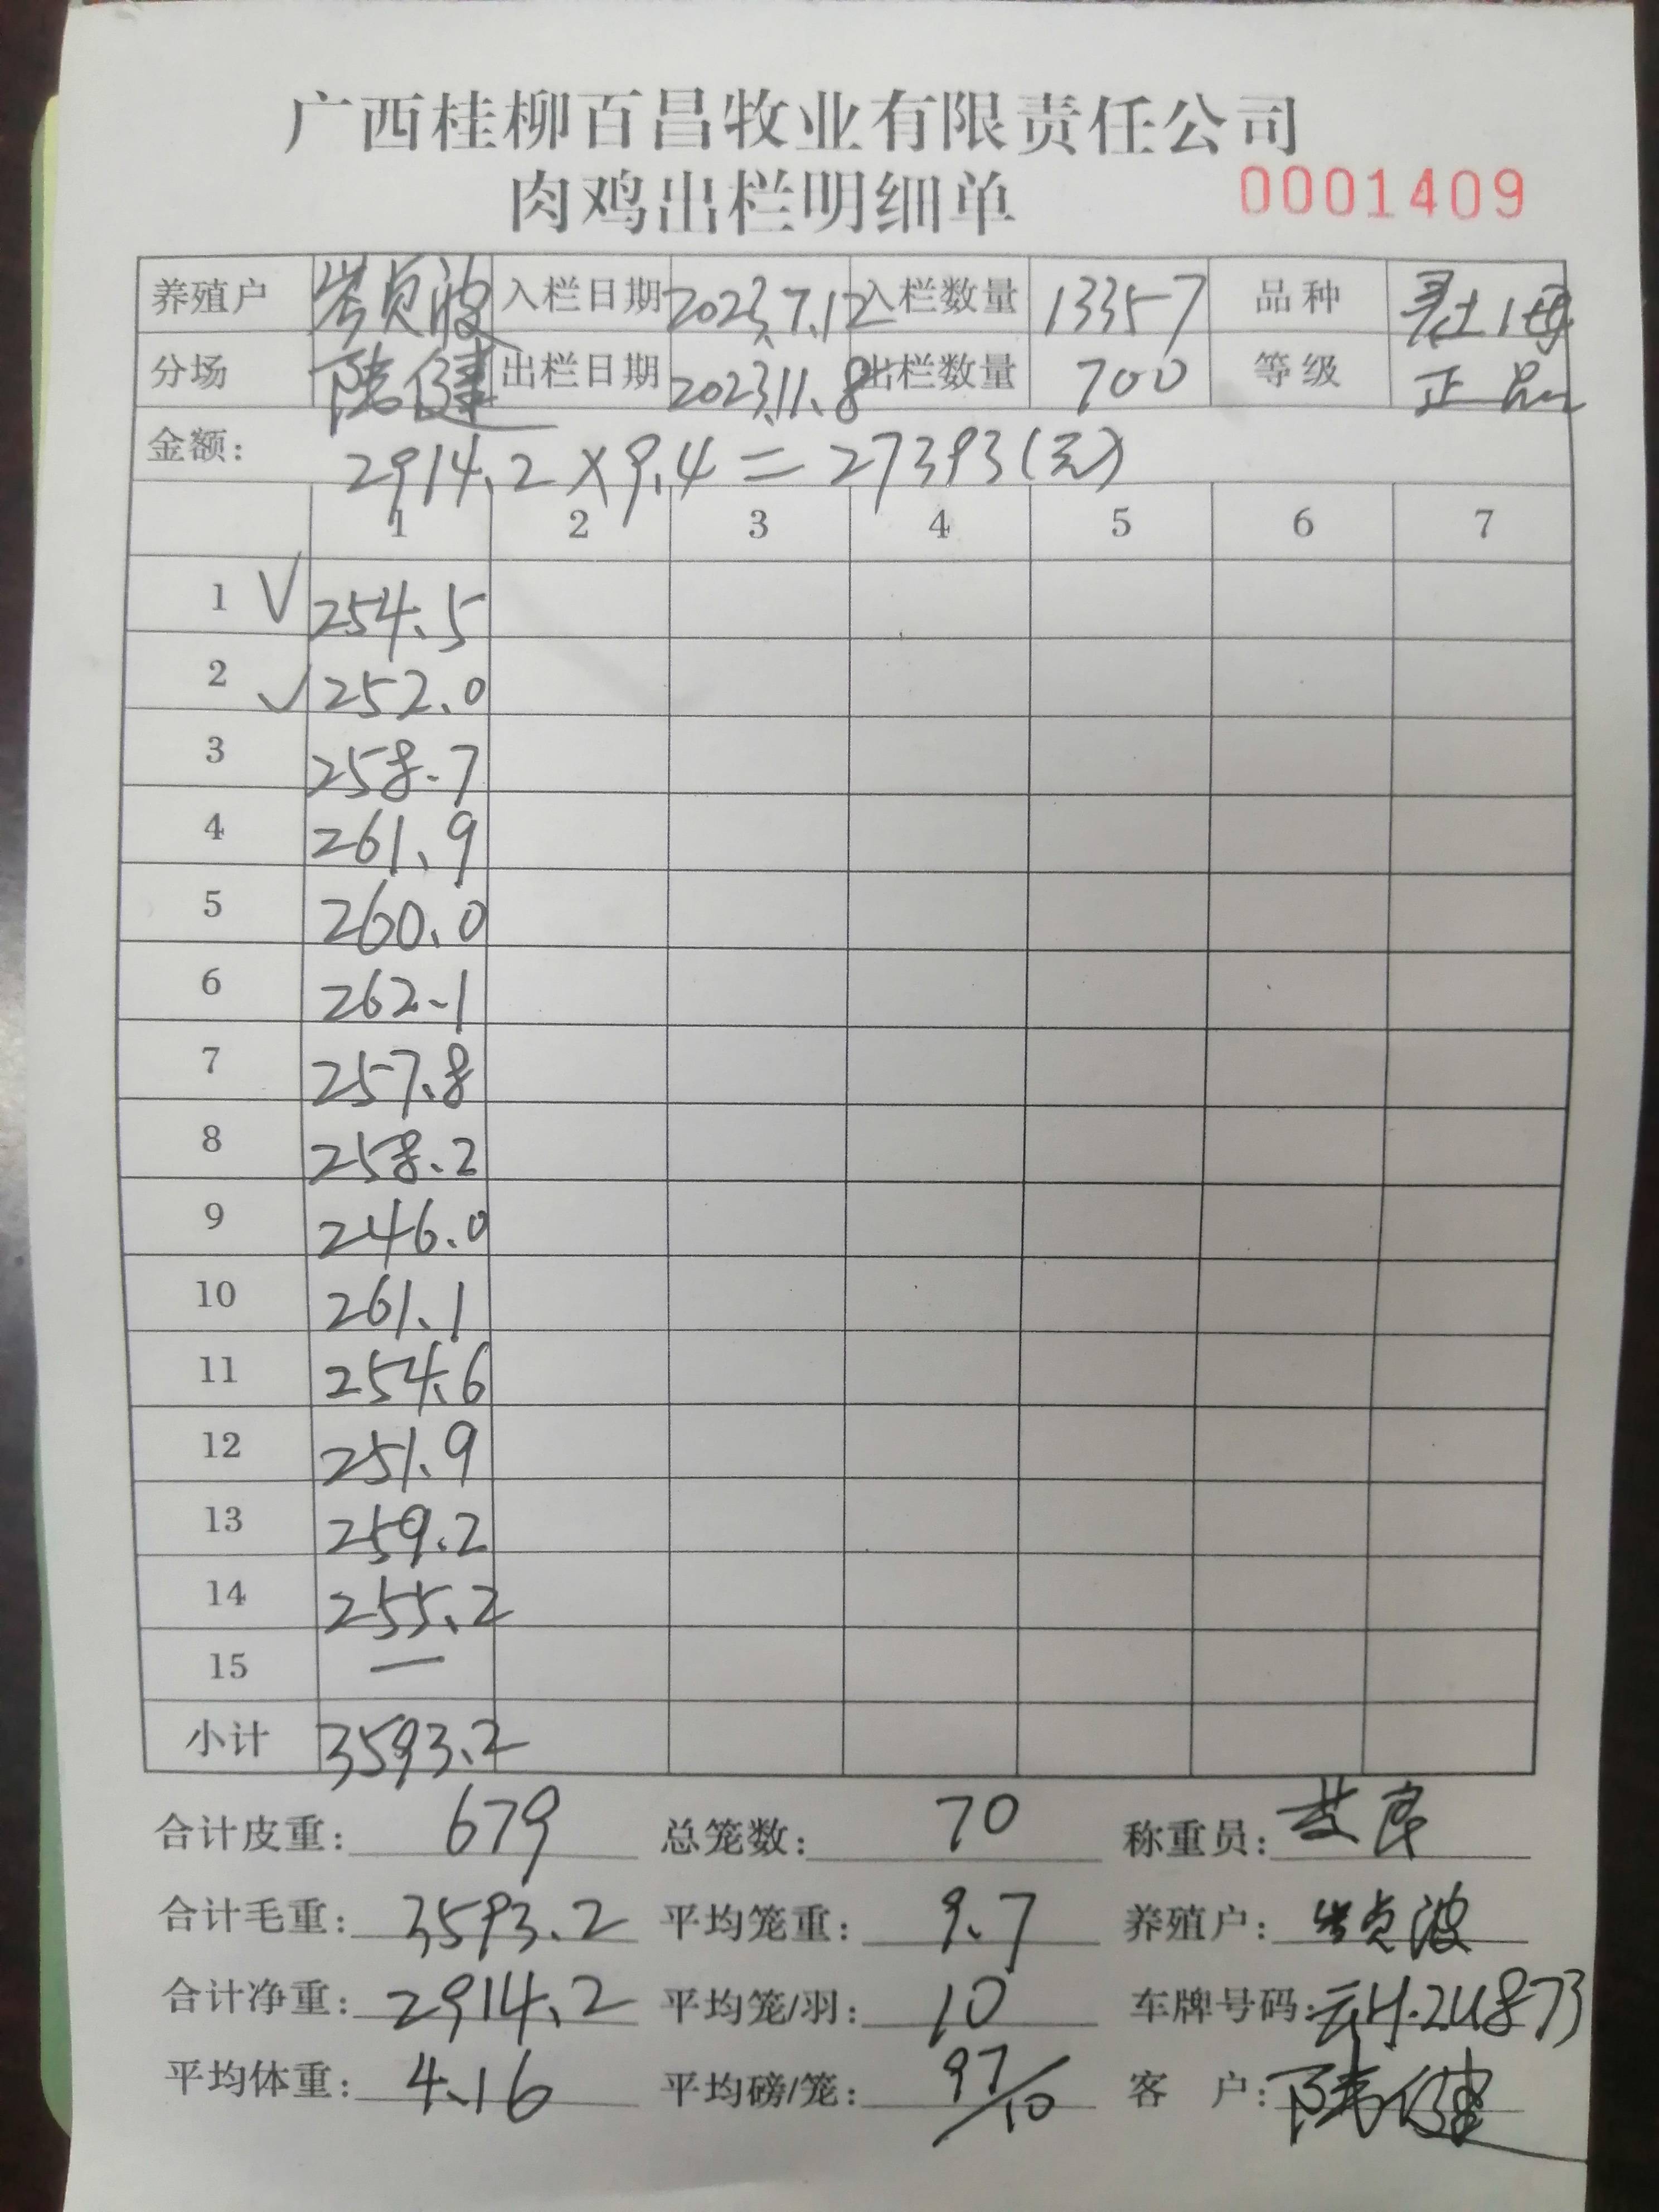 广西桂柳百昌牧业有限责任公司
肉鸡出栏明细单 0001409
养殖户 岑贞波 入栏日期 2023.7.12 入栏数量 13357 品种 土1母
分场 陆健 出栏日期 2023.11.8 出栏数量 700 等级 正品
金额: 2914.2×9.4=27393(元)
1 2 3 4 5 6 7
1 √ 254.5
2 √ 252.0
3 258.7
4 261.9
5 260.0
6 262.1
7 257.8
8 258.2
9 246.0
10 261.1
11 254.6
12 251.9
13 259.2
14 255.2
15 —
小计 3593.2
合计皮重: 679 总笼数: 70 称重员:
合计毛重: 3593.2 平均笼重: 9.7 养殖户: 岑贞波
合计净重: 2914.2 平均笼/羽: 10 车牌号码: 云H.24873
平均体重: 4.16 平均磅/笼: 97/10 客 户: 陆健